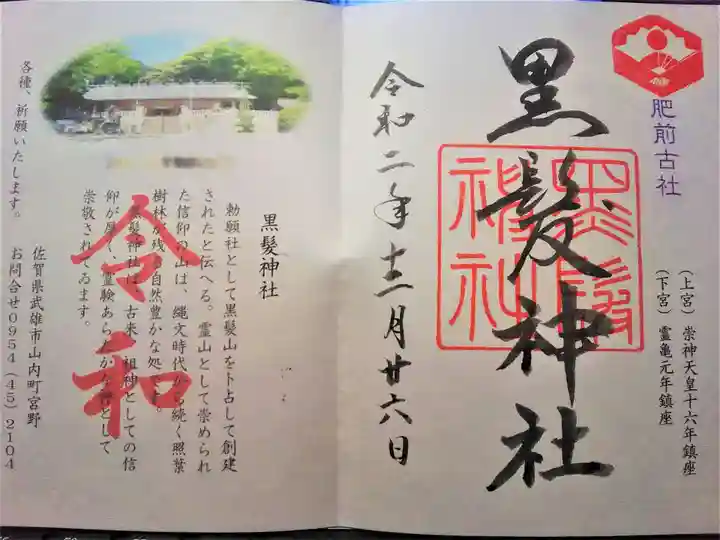 肥前古社
(上宮)崇神天皇十六年鎮座
(下宮)霊亀元年鎮座
黒髪神社
黒髪
神社
令和二年十二月廿六日
黒髪神社
勅願社として黒髪山を卜占して創建
されたと伝へる。霊山として崇められ
た信仰の山は、縄文時代から続く照葉
樹林が残る自然豊かな処です。
黒髪神社は、古来、祖神としての信
仰が厚く、霊験あらたかな神として
崇敬されてゐます。
令和
佐賀県武雄市山内町宮野
お問合せ0954(45)2104
各種、祈願いたします。